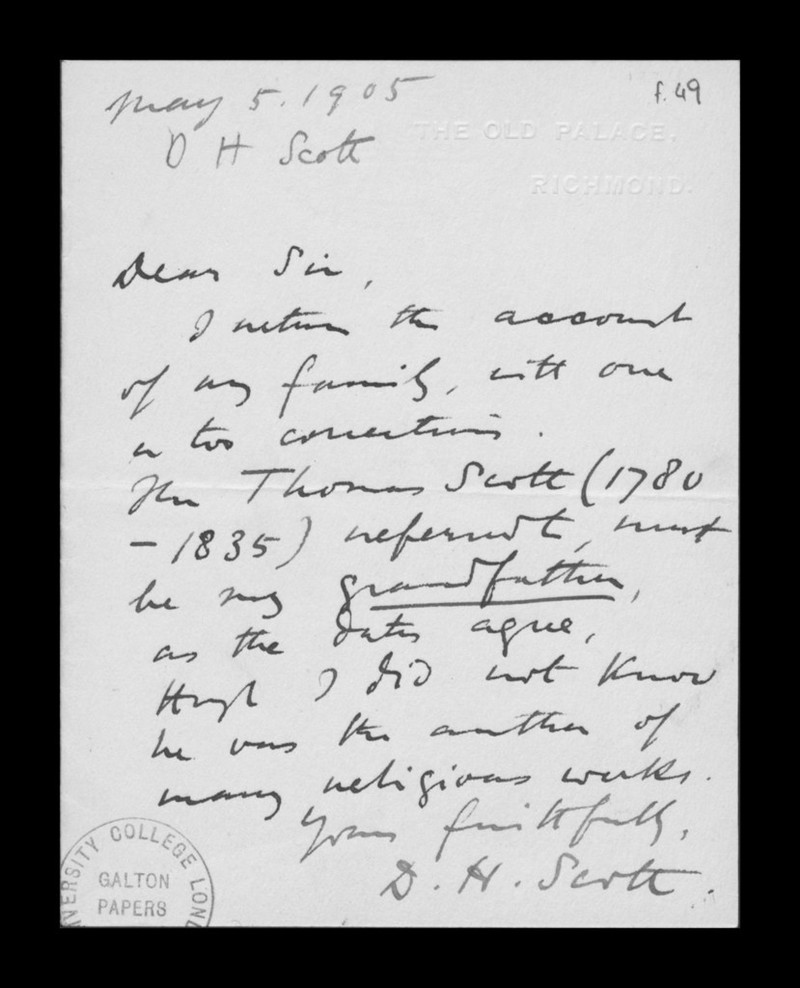 May 5. 1905
f. 49
D H Scott
THE OLD PALACE,
RICHMOND.
Dear Sir,
I return the account
of my family, with one
or two corrections.
The Thomas Scott (1780
– 1835) referred to, must
be my grandfather,
as the dates agree,
though I did not know
he was the author of
many religious works.
Yours faithfully,
D. H. Scott.
VERSITY COLLEGE LOND
GALTON
PAPERS